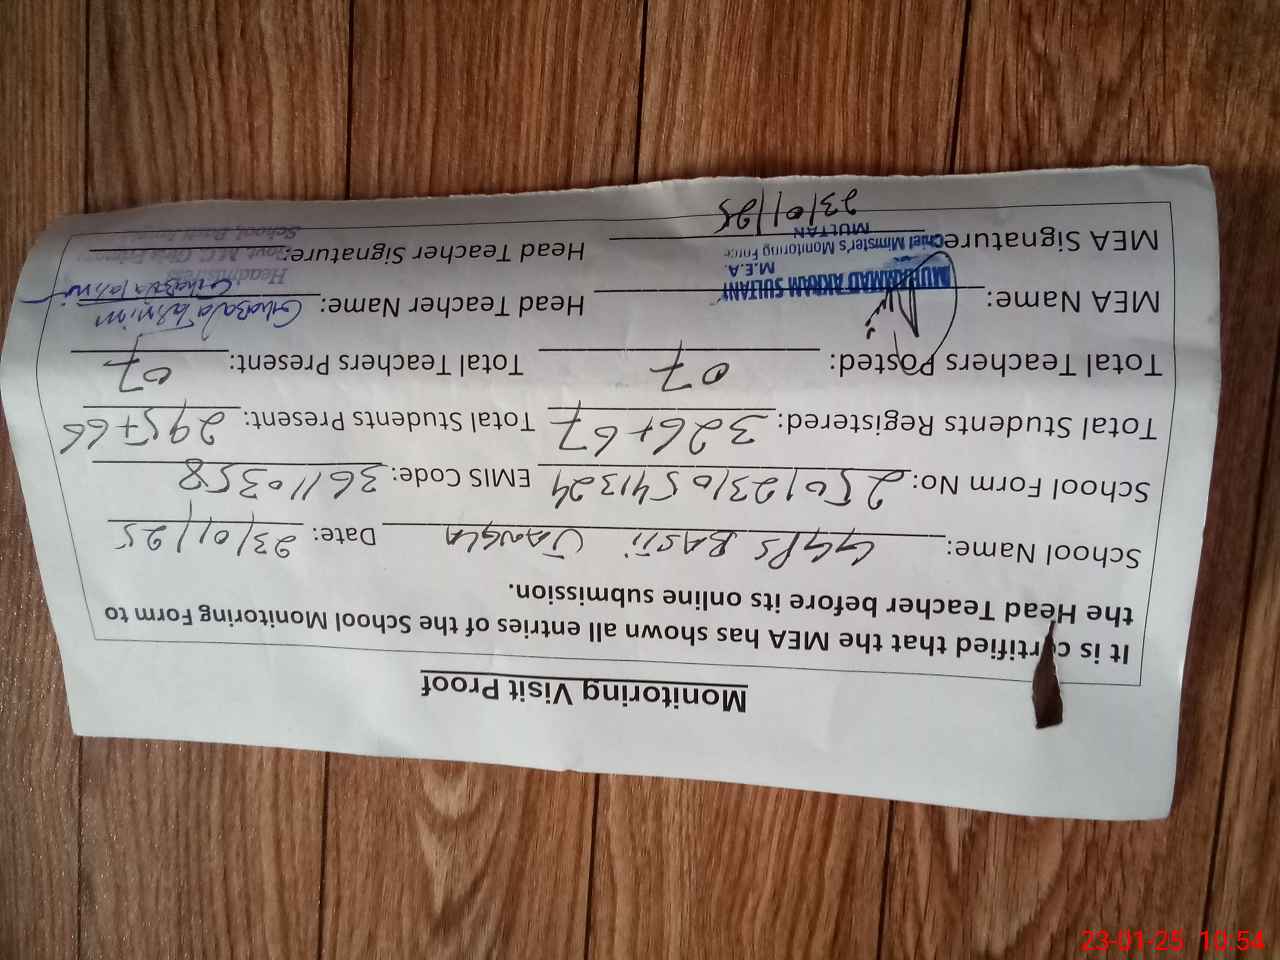 Monitoring Visit Proof
It is certified that the MEA has shown all entries of the School Monitoring Form to
the Head Teacher before its online submission.
School Name: GGPS BASTI JANGLA Date: 23/01/25
School Form No: 250123105411324 EMIS Code: 36110358
Total Students Registered: 326+67 Total Students Present: 295+66
Total Teachers Posted: 07 Total Teachers Present: 07
MEA Name: MUHAMMAD AKRAM SULTANI Head Teacher Name: Ghazala Tasnim
M.E.A. Headmistress
MEA Signature: Chief Minister's Monitoring Force Head Teacher Signature: Govt. M.C. Girls Primary
MULTAN School, Basti
23/01/25
23-01-25 10:54